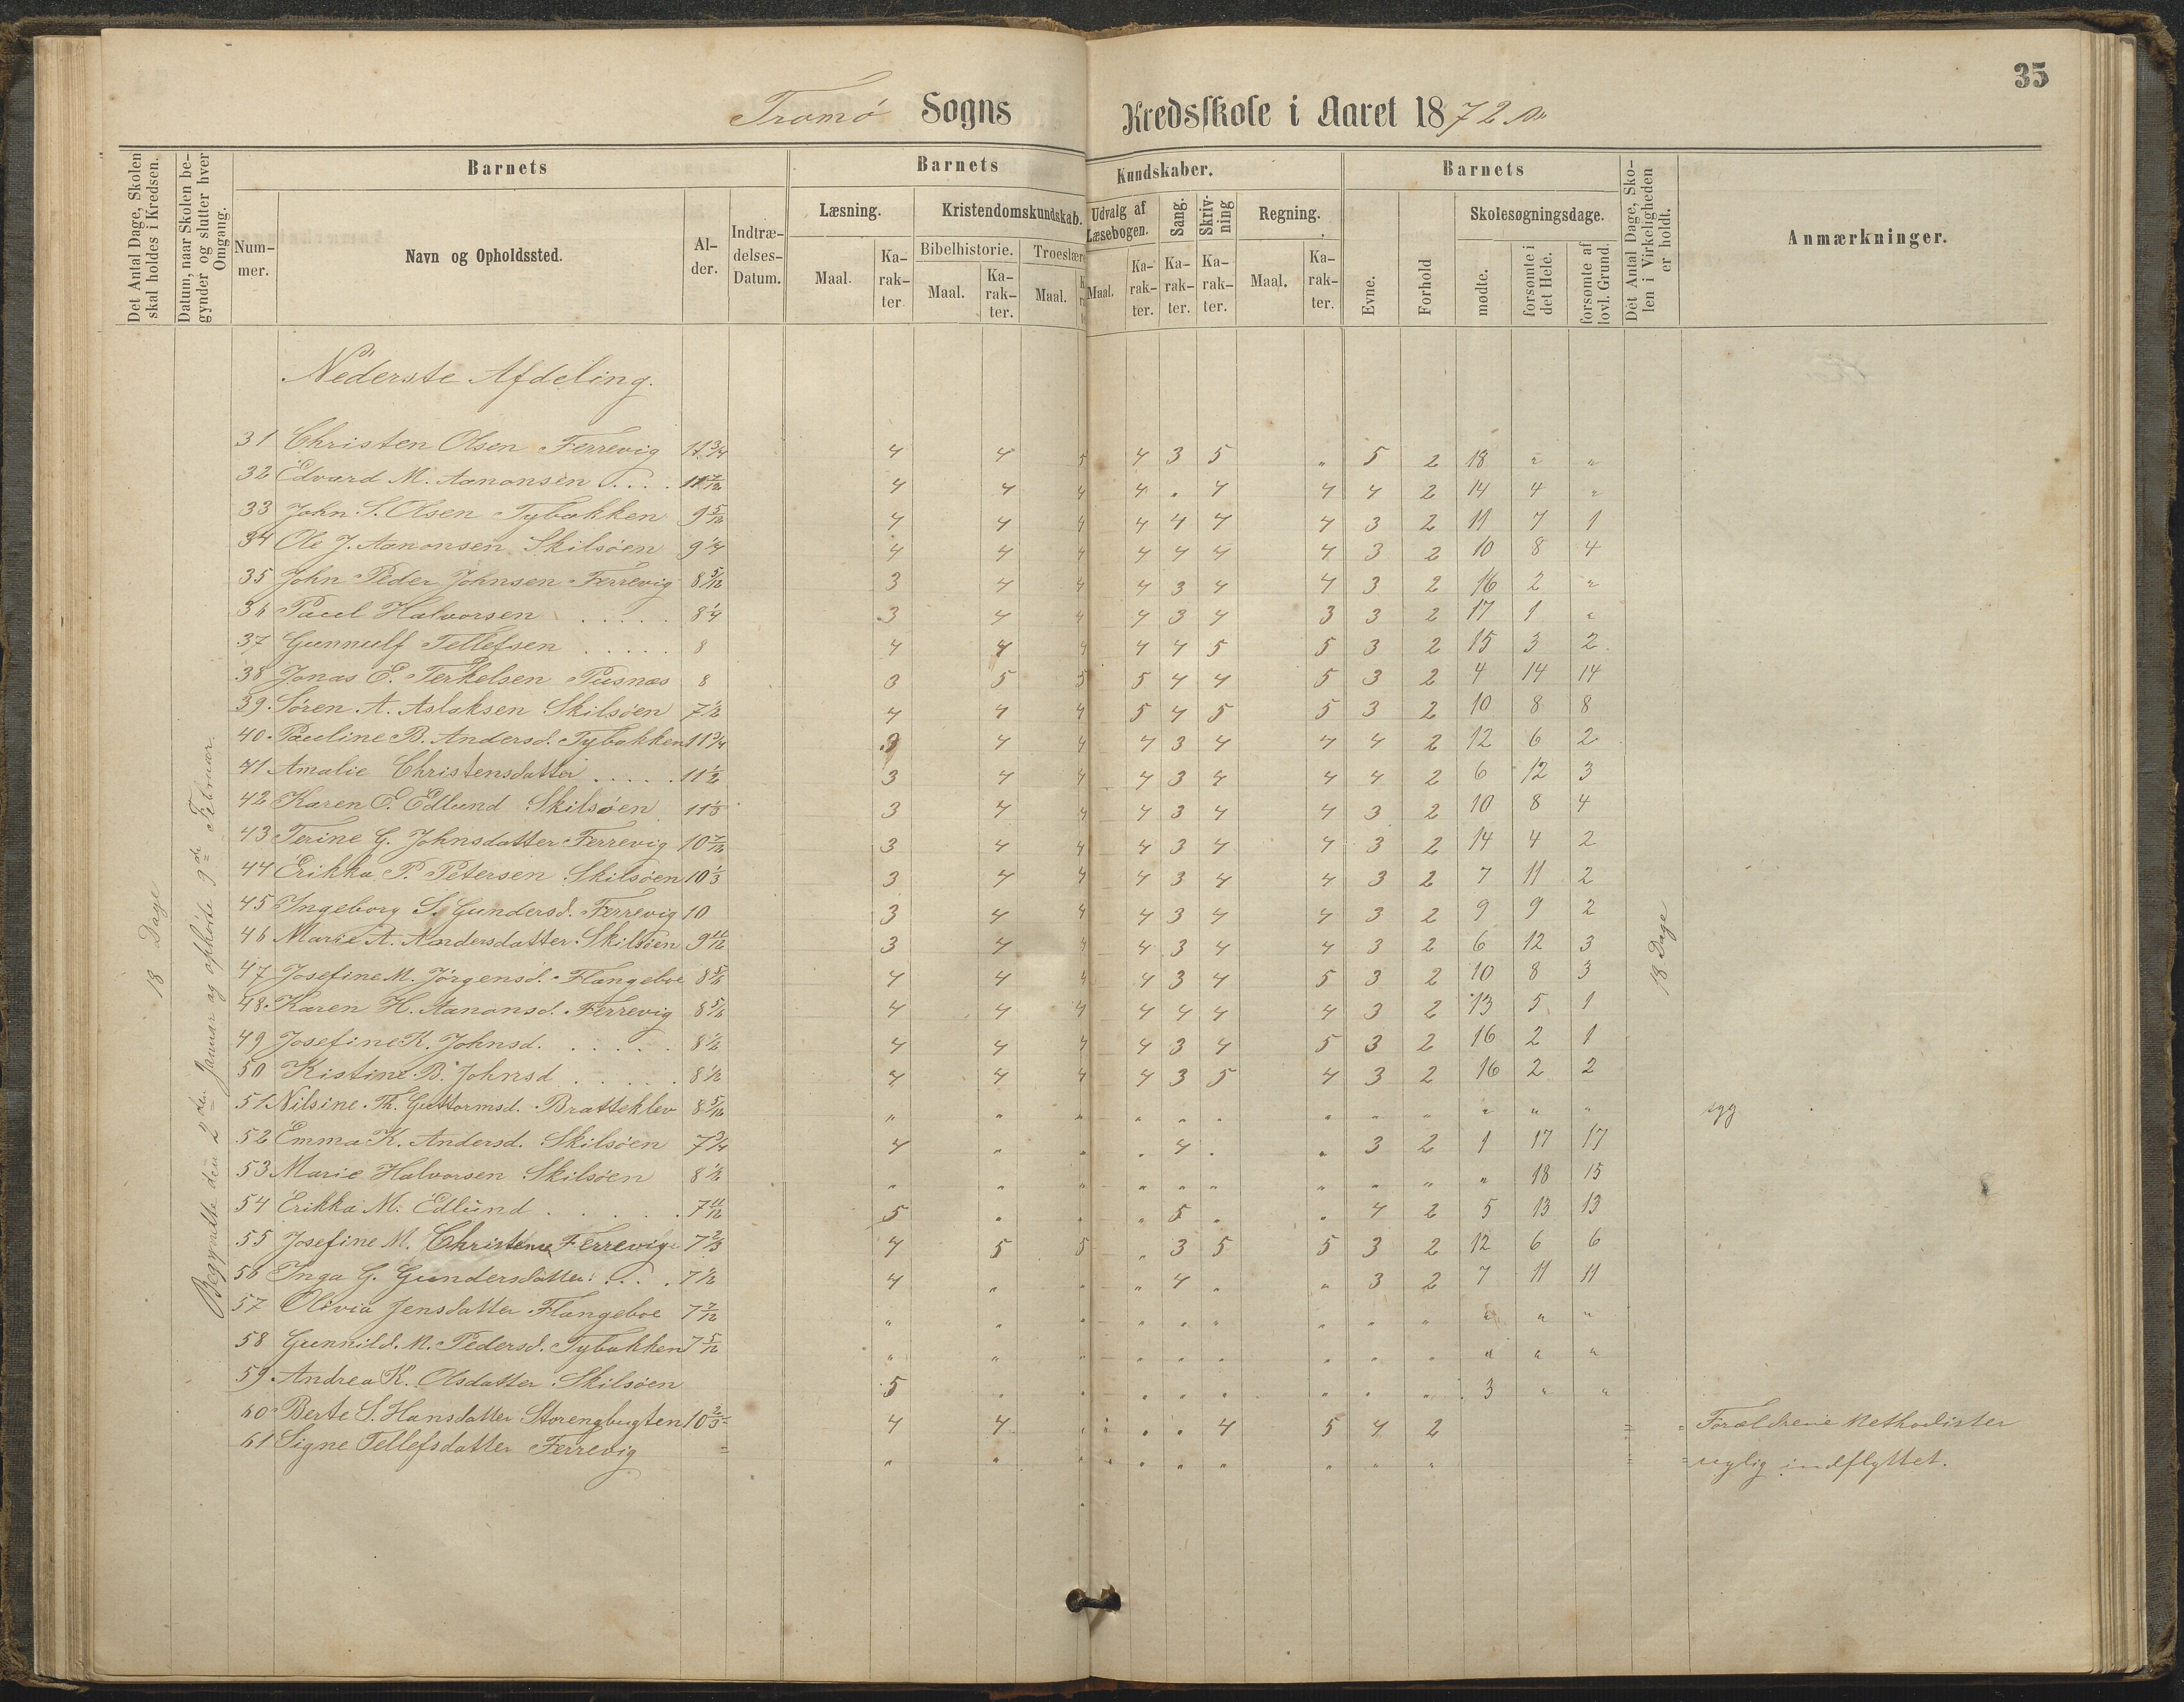 35
Tromø Sogns Kredsskole i Aaret 1872
Det Antal Dage, Skolen skal holdes i Kredsen.
Datum, naar Skolen begynder og slutter hver Omgang.
Barnets
Nummer.
Navn og Opholdssted.
Alder.
Indtrædelses-Datum.
Barnets Kundskaber.
Læsning.
Maal. Karakter.
Kristendomskundskab.
Bibelhistorie.
Maal. Karakter.
Troeslære
Maal.
Udvalg af Læsebogen.
Maal. Karakter.
Sang.
Karakter.
Skrivning
Karakter.
Regning.
Maal. Karakter.
Barnets
Evne.
Forhold
Skolesøgningsdage.
mødte.
forsømte i det Hele.
forsømte af lovl. Grund.
Det Antal Dage, Skolen i Virkeligheden er holdt.
Anmærkninger.
18 Dage
Begyndte den 2den Januar og ophørte 9de Februar.
18 Dage
Nederste Afdeling.
31 Christen Olsen Færrevig 11 3/4 4 4 5 4 3 5 " 5 2 18 " "
32 Edvard M. Aanonsen . . . . 11 7/12 4 4 4 4 . 4 4 4 2 14 4 "
33 John S. Olsen Tybakken 9 5/12 4 4 4 4 4 4 4 3 2 11 7 1
34 Ole J. Aanonsen Skilsøen 9 1/4 4 4 4 4 4 4 4 3 2 10 8 4
35 John Peder Johnsen Færrevig 8 5/12 3 4 4 4 3 4 4 3 2 16 2 "
36 Paul Halvorsen . . . . . 8 1/4 3 4 4 4 3 4 3 3 2 17 1 "
37 Gunnulf Tellefsen . . . . . 8 4 4 4 4 4 5 5 3 2 15 3 2
38 Jonas E. Terkelsen Pusnæs 8 3 5 5 5 4 4 5 3 2 4 14 14
39. Søren A. Aslaksen Skilsøen 7 1/2 4 4 4 5 4 5 5 3 2 10 8 8
40. Pauline B. Andersd. Tybakken 11 3/4 3 4 4 4 3 4 4 4 2 12 6 2
41 Amalie Christensdatter . . . . . 11 1/2 3 4 4 4 3 4 4 4 2 6 12 3
42 Karen E. Edlund Skilsøen 11 1/3 3 4 4 4 3 4 4 3 2 10 8 4
43 Terine G. Johnsdatter Færrevig 10 7/12 3 4 4 4 3 4 4 3 2 14 4 2
44 Erikka P. Petersen Skilsøen 10 1/3 3 4 4 4 3 4 4 3 2 7 11 2
45 Ingeborg S. Gundersd. Færrevig 10 3 4 4 4 3 4 4 3 2 9 9 2
46 Marie A. Andersdatter Skilsøen 9 11/12 3 4 4 4 3 4 4 3 2 6 12 3
47 Josefine M. Jørgensd. Flangeboe 8 5/6 4 4 4 4 3 4 5 3 2 10 8 3
48. Karen H. Aanonsd. Færrevig 8 5/6 4 4 4 4 4 4 4 3 2 13 5 1
49 Josefine K. Johnsd. . . . . . 8 1/2 4 4 4 4 3 4 5 3 2 16 2 1
50 Kistine B. Johnsd . . . . . 8 1/2 4 4 4 4 3 5 4 3 2 16 2 2
51 Nilsine Th. Guttormsd. Bratteklev 8 5/12 " " " " " " " " " " " " syg
52 Emma K. Andersd. Skilsøen 7 3/4 4 " " . 4 . " 3 2 1 17 17
53 Marie Halvorsen Skilsøen 8 1/2 " " " " " " " " " " 18 15
54 Erikka M. Edlund . . . . . 7 11/12 5 " . " 5 . . 4 2 5 13 13
55 Josefine M. Christense Færrevig 7 2/3 4 5 5 " 3 5 5 3 2 12 6 6
56 Inga G. Gundersdatter . . . . 7 1/2 4 " " " 4 " " 3 2 7 11 11
57 Olivia Jensdatter Flangeboe 7 7/12 " " " " " " " " " " " "
58 Gunnild. M. Pedersd. Tybakken 7 5/12 " " " " " " " " " " " "
59. Andrea K. Olsdatter Skilsøen 5 " " " " " " " " 3 " "
60 Berte S. Hansdatter Storengbugten 10 2/3 4 4 " . . 4 5 4 2 = = Forældrene Methodister
61 Signe Tellefsdatter Færrevig = " " " " " " " " " = = nylig indflyttet.